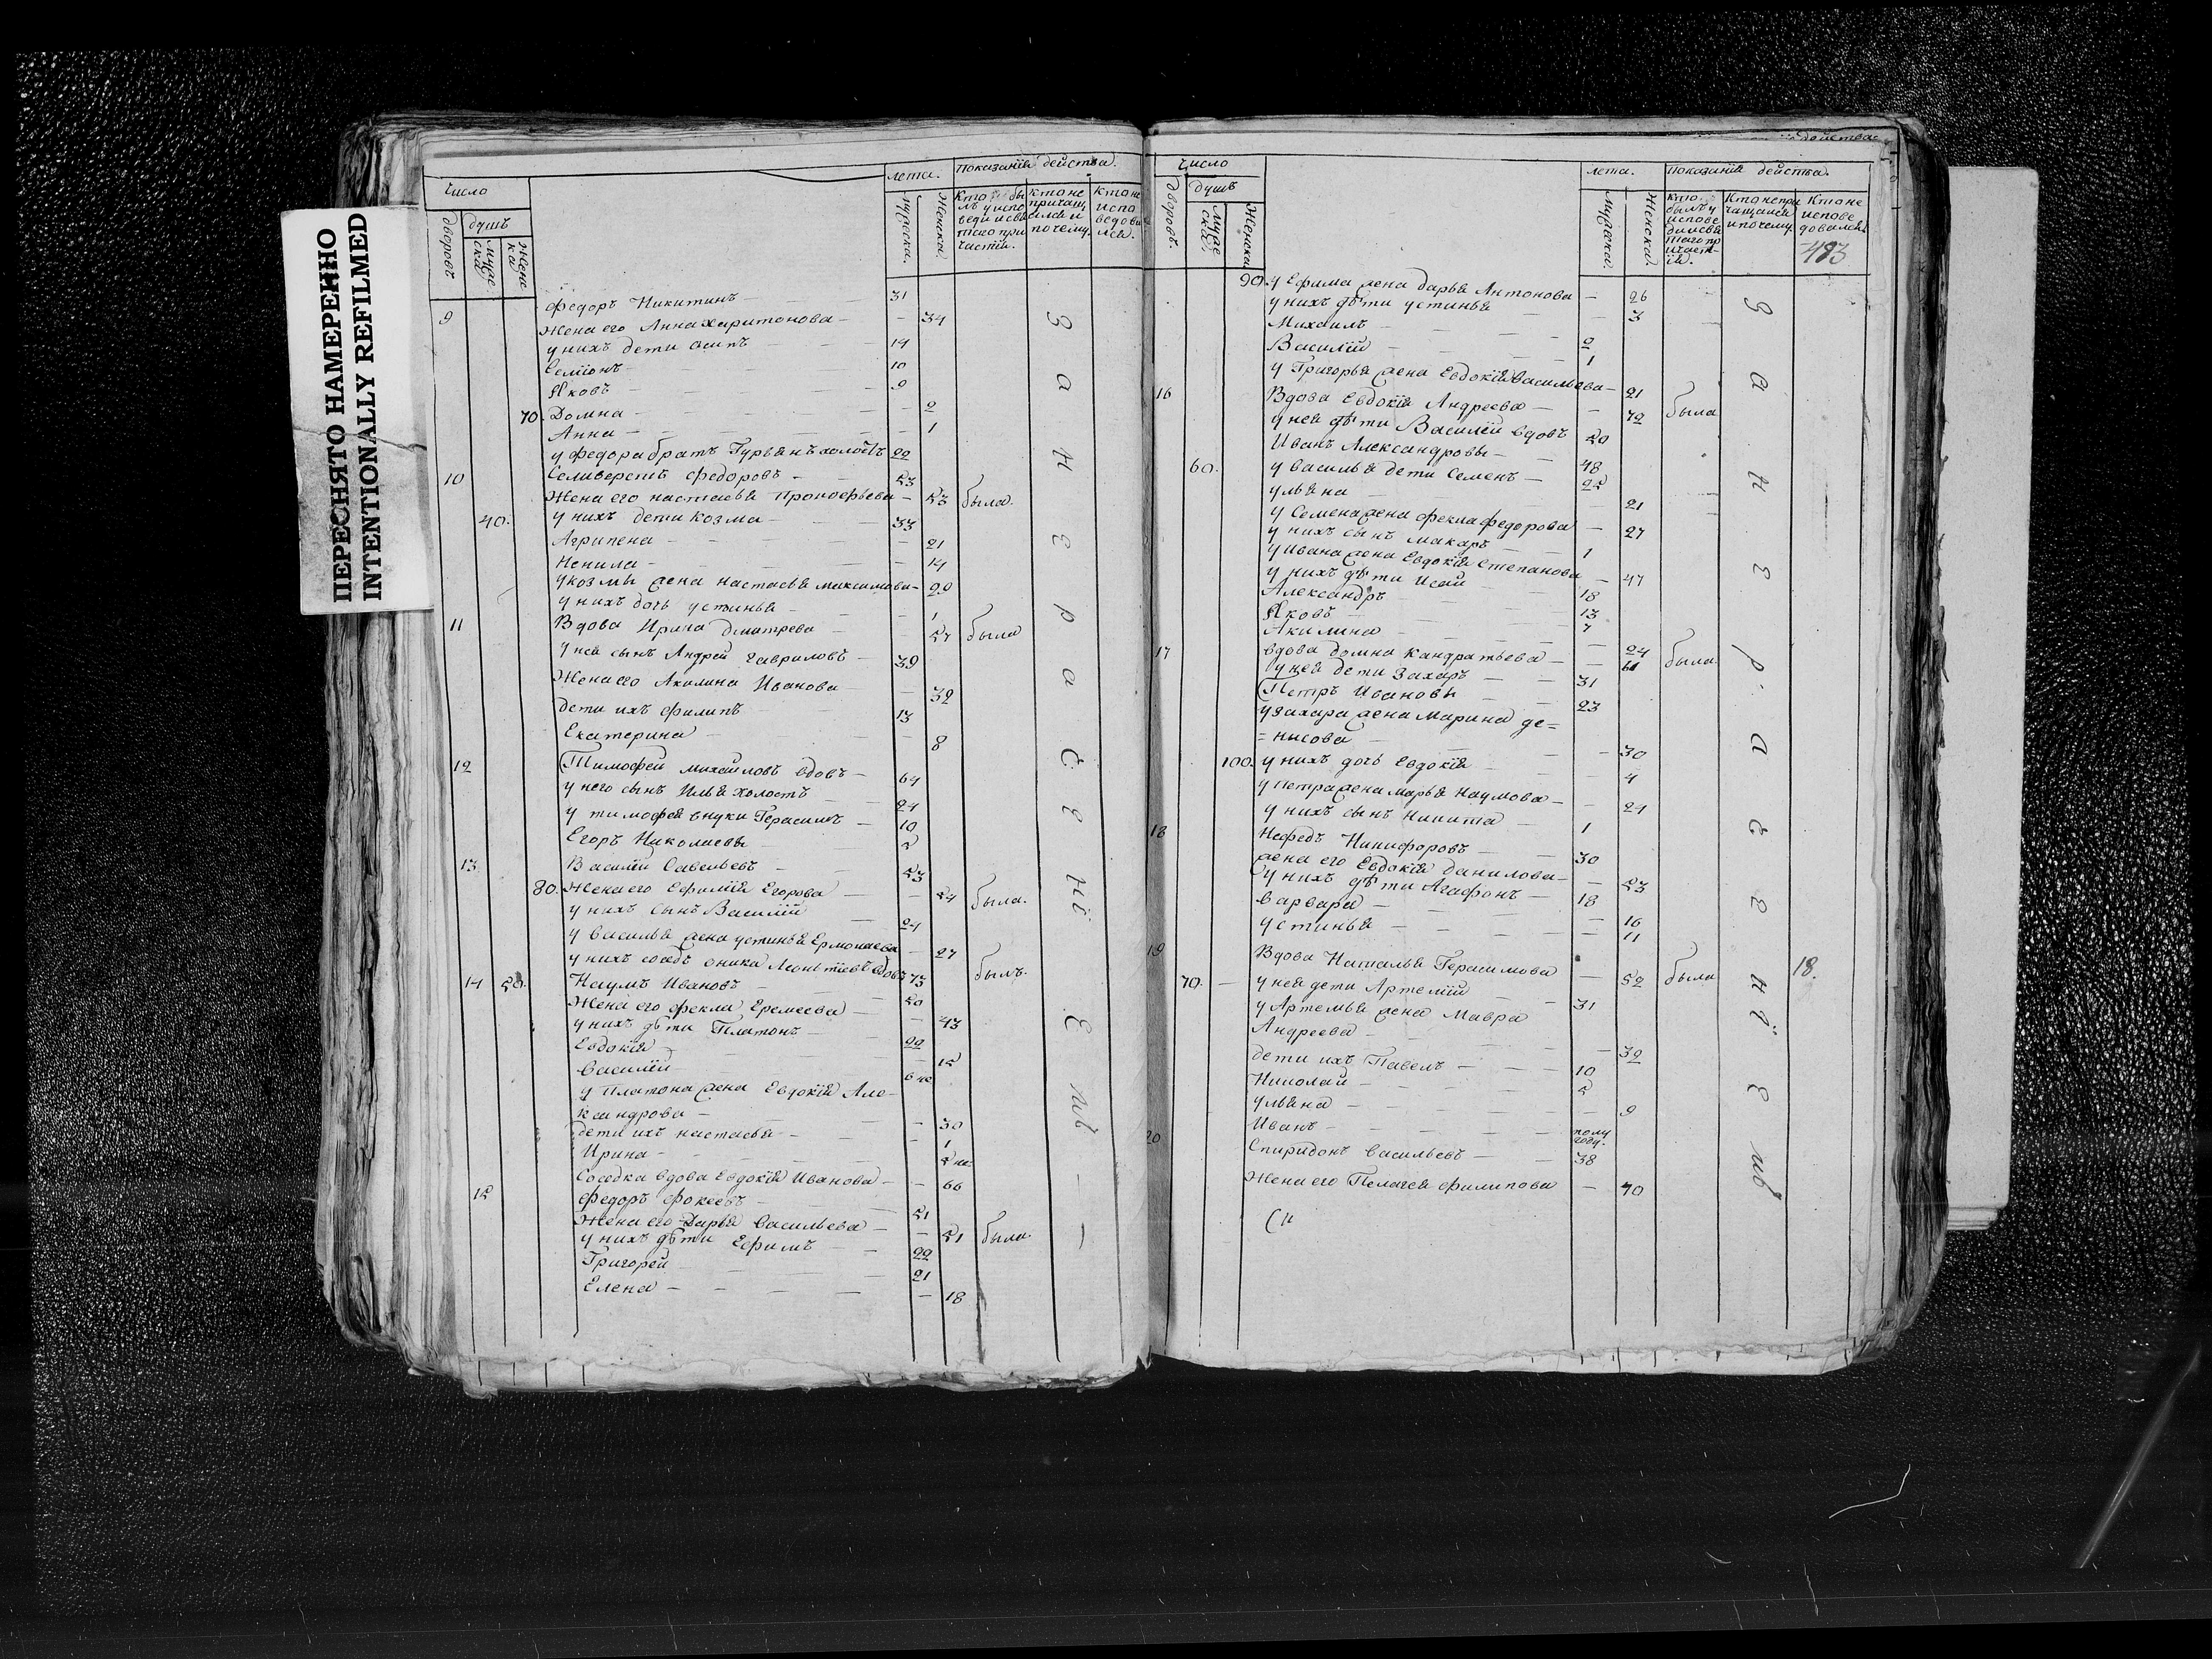 ПЕРЕСНЯТО НАМЕРЕННО
INTENTIONALLY REFILMED
Число
лета.
Показанія действа.
дворовъ
душъ
мужеска
женска
мужеска.
Женска.
Кто бы
лъ у испо
веди и свя
таго при
частія.
Кто не
причащ
ался и
почему.
Кто не
испо
ведова
лся.
9 Федоръ Никитинъ — 31
Жена его Анна Харитонова — — 34
у нихъ дети Осипъ — — 14
Семіонъ — 10
Яковъ — — 9
70. Домна — — 2
Анна — — — 1
у Федора братъ Гурьянъ холостъ 22
10 Селиверстъ Федоровъ — 53
Жена его Настасья Прокофьева — 53 была.
40. у нихъ дети Козма — — 33
Агрипена — — — 21
Ненила — — — 14
у Козмы жена Настасья Максимова — 20
у нихъ дочь Устинья — — 1
11 Вдова Ирина Дмитрева — — 57 была
У ней сынъ Андрей Гавриловъ — 39
Жена его Акилина Иванова — — 32
Дети ихъ Филипъ — 13
Екатерина — — 8
12 Тимофей Михайловъ вдовъ — 64
у него сынъ Илья холостъ — 24
у Тимофея внуки Герасимъ — 10
Егоръ Николаевы — 5
13 Василій Савельевъ — — 53
80. Жена его Ефимія Егорова — — 54 была.
у нихъ сынъ Василій — 24
у Василья жена Устинья Ермолаева — 27
у нихъ соседъ Оника Леонтіевъ вдовъ 73 былъ.
14 50. Наумъ Ивановъ — — 50
Жена его Фекла Еремеева — — 43
у нихъ дѣти Платонъ — 22
Евдокія — — 15
Василій — 6 не
у Платона жена Евдокія Але-
ксандрова — — 30
дети ихъ Настасья — — 1
Ирина — — 5 не.
Соседка вдова Евдокія Иванова — — 66
15 Федоръ Фокеевъ — 51
Жена его Дарья Васильева — — 51 была.
у нихъ дѣти Ефимъ — — 22
Григорей — 21
Елена — — — — — 18
З а н е р а с е н і е мъ —
действа
Число
лета.
Показанія действа.
дворовъ.
душъ
мужеска
Женска
мужска.
Женска.
кто
былъ у
испове
ди и свя
таго пр
ичаст
ія.
Кто непри
чащался
и почему.
Кто не
испове
довался.
483
90. у Ефима жена Дарья Антонова — 26
у нихъ дѣти Устинья — 3
Михаилъ — — — 2
Василій — — — 1
у Григорья жена Евдокія Васильева — 21
16 Вдова Евдокія Андреева — — 72 была
у ней дѣти Василій вдовъ 50
Иванъ Александровы — 48
60. у Василья дети Семенъ — 25
Ульяна — — 21
у Семена жена Фекла Федорова — 27
у нихъ сынъ Макаръ — 1
у Ивана жена Евдокія Степанова — 47
у нихъ дѣти Исай — 18
Александръ — 13
Яковъ — — 7
Акилина — — 24
17 вдова Домна Кандратьева — — 61 была.
у ней дети Захаръ — — 31
Петръ Ивановы — 23
у Захара жена Марина Де=
=нисова — — — 30
100. у нихъ дочь Евдокія — — 4
у Петра жена Марья Наумова — — 24
у нихъ сынъ Никита — 1
18 Нефедъ Никифоровъ — — 30
жена его Евдокія Данилова — — 53
у нихъ дѣти Агафонъ — 18
Варвара — — — 16
Устинья — — — 11
19 Вдова Наталья Герасимова — 52 была 18.
70. — у ней дети Артемій — — 31
у Артемья жена Мавра
Андреева — — — 32
Дети ихъ Павелъ — — 10
Николай — — — 5
Ульяна — — — 9
Иванъ — — — полу году.
20 Спиридонъ Васильевъ — — 38
Жена его Пелагея Филипова — 40
З а н е р а с е н і е мъ